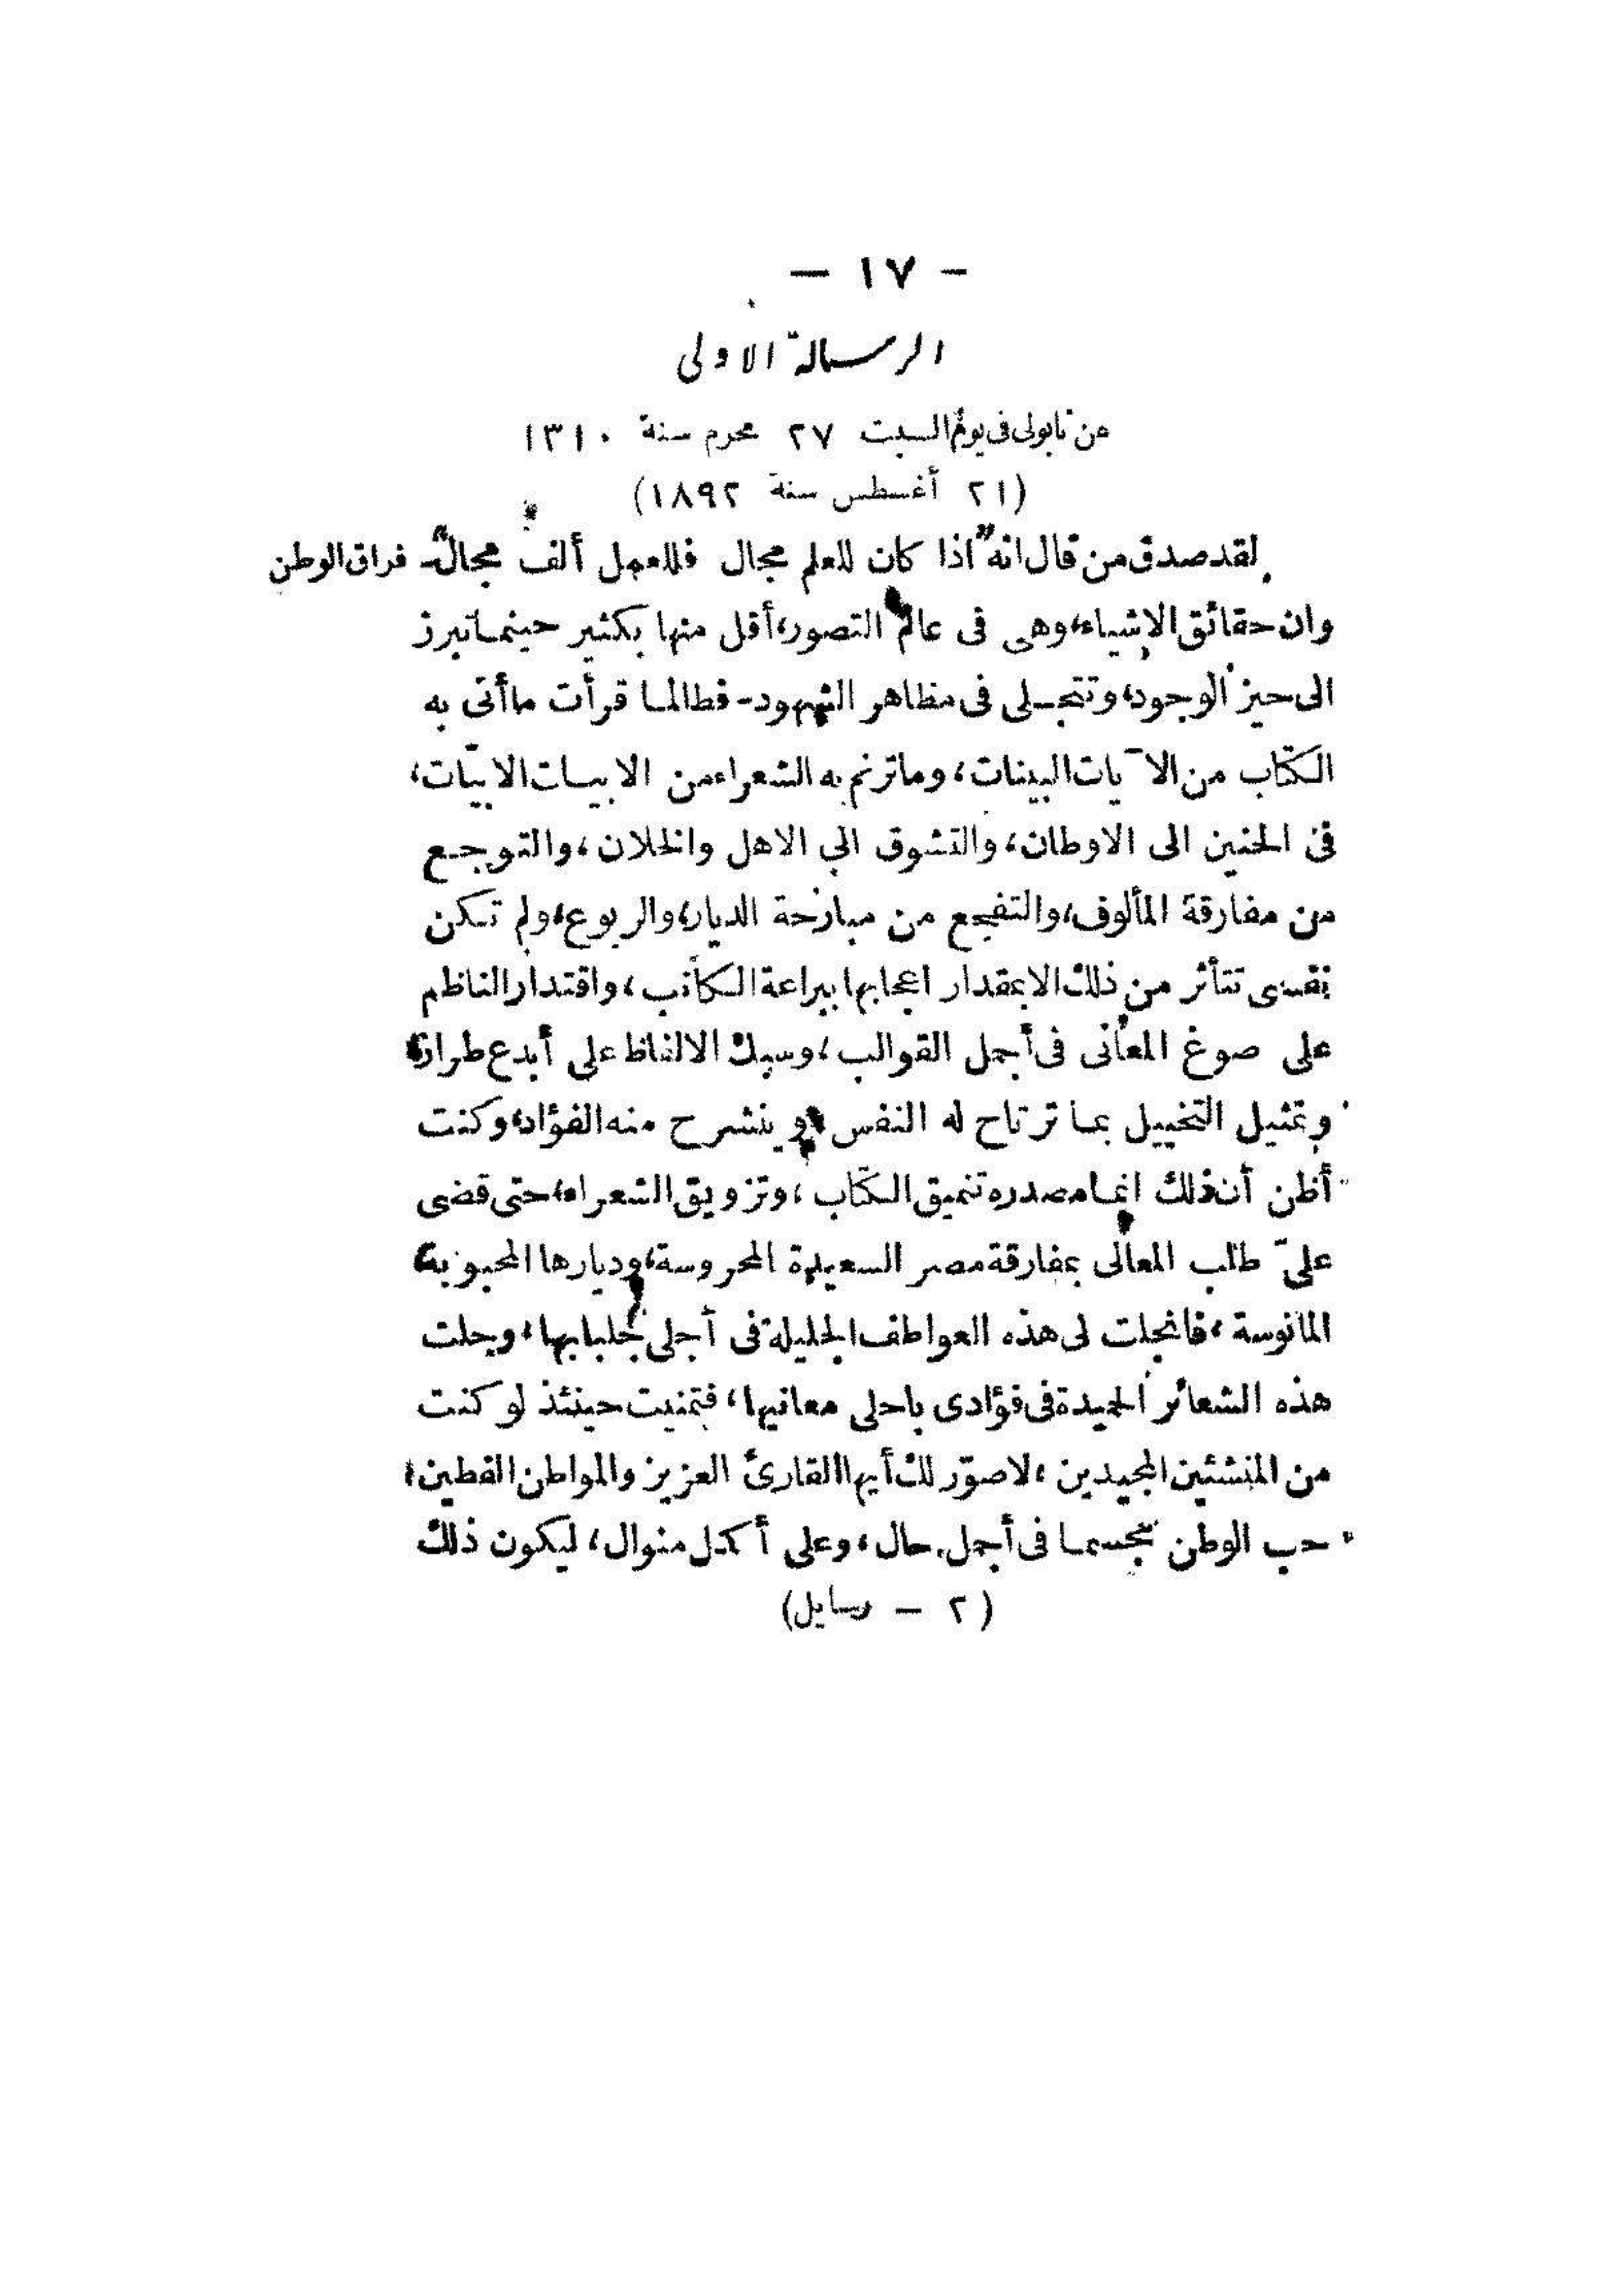 - ١٧ -
الرسالة الاولى
من نابولى فى يوم السبت ٢٧ محرم سنة ١٣١٠
(٢١ أغسطس سنة ١٨٩٢)
لقد صدق من قال انه "اذا كان للعلم مجال فللعمل ألف مجال" - فراق الوطن
وان حقائق الاشياء، وهى فى عالم التصور، أقل منها بكثير حينما تبرز
الى حيز الوجود، وتتجلى فى مظاهر الشهود - فطالما قرأت ما أتى به
الكتاب من الآيات البينات، وما ترنم به الشعراء من الابيات الابيّات،
فى الحنين الى الاوطان، والتشوق الى الاهل والخلان، والتوجع
من مفارقة المألوف، والتفجع من مبارحة الديار، والربوع، ولم تكن
نفسى تتأثر من ذلك الا بمقدار اعجابها ببراعة الكاتب، واقتدار الناظم
على صوغ المعانى فى أجمل القوالب، وسبك الالفاظ على أبدع طراز،
وتمثيل التخييل بما ترتاح له النفس، وينشرح منه الفؤاد، وكنت
أظن أن ذلك انما مصدره تنميق الكتّاب، وتزويق الشعراء، حتى قضى
علىّ طلب المعالى بمفارقة مصر السعيدة المحروسة، وديارها المحبوبة،
المانوسة، فانجلت لى هذه العواطف الجليلة فى أجلى جلبابها، وحلت
هذه الشعائر الحميدة فى فؤادى باحلى معانيها، فتمنيت حينئذ لو كنت
من المنشئين المجيدين، لاصوّر لك أيها القارئ العزيز والمواطن الفطين،
حب الوطن مجسما فى أجمل حال، وعلى أكمل منوال، ليكون ذلك
(٢ - رسايل)